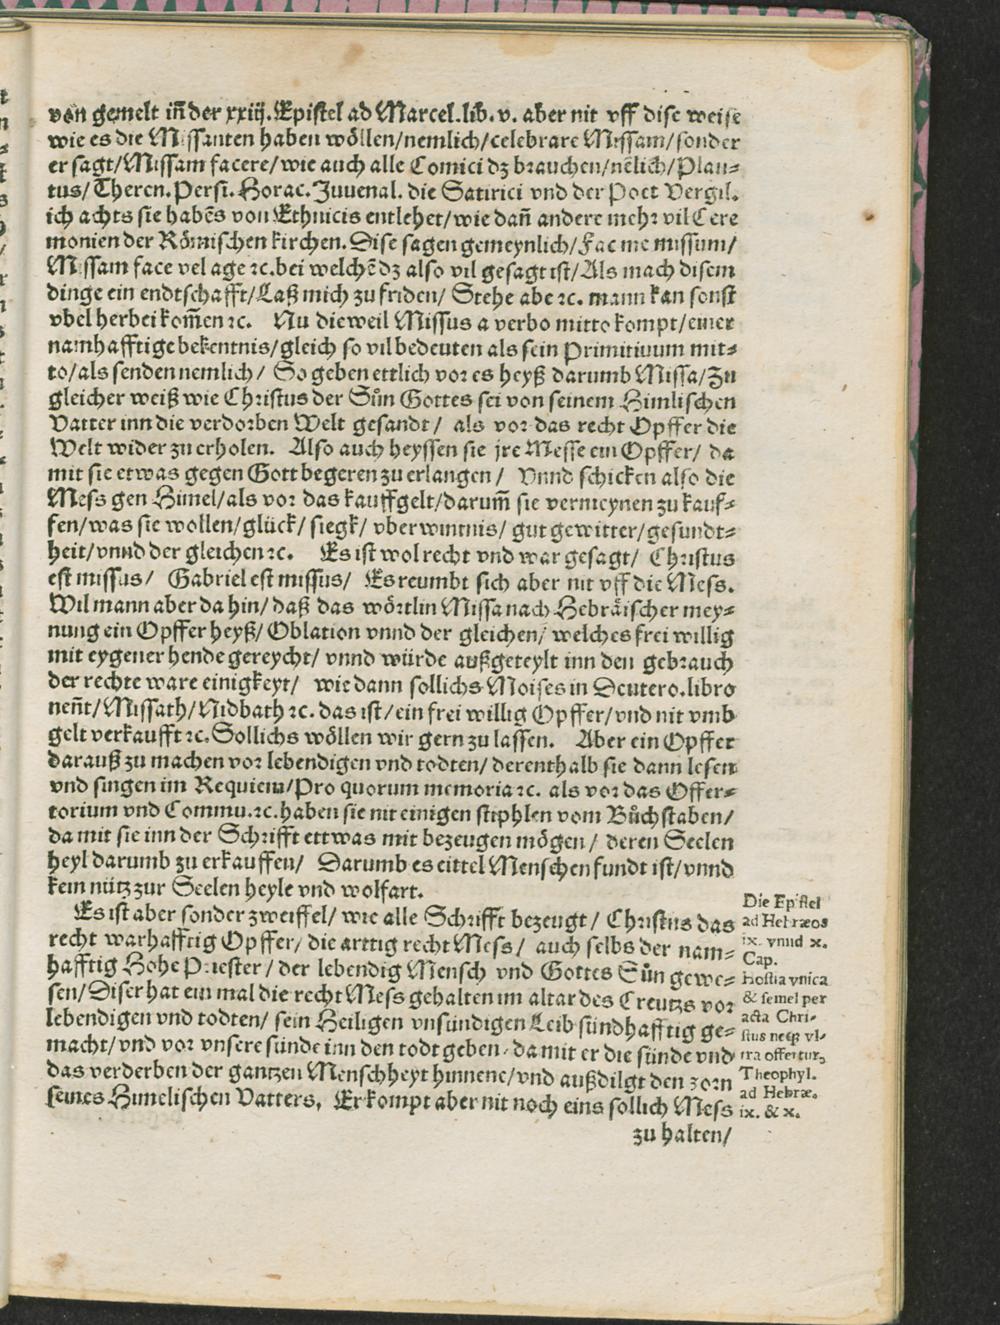 von gemelt iñ der xxiij. Epistel ad Marcel. lib. v. aber nit vff dise weise
wie es die Missanten haben wöllen/nemlich/celebrare Missam/sonder
er sagt/Missam facere/wie auch alle Comici dz brauchen/nẽlich/Plau⸗
tus/Theren. Persi. Horac. Juuenal. die Satirici vnd der Poet Vergil.
ich achts sie habẽs von Ethnicis entlehet/wie dañ andere mehr vil Cere
monien der Römischen kirchen. Dise sagen gemeynlich/Fac me missum/
Missam face vel age ꝛc. bei welchẽ dz also vil gesagt ist/Als mach disem
dinge ein endtschafft/Laß mich zu friden/ Stehe abe ꝛc. mann kan sonst
vbel herbei kom̃en ꝛc. Nu dieweil Missus a verbo mitto kompt/einer
namhafftige bekentnis/gleich so vil bedeuten als sein Primitiuum mit⸗
to/als senden nemlich/ So geben ettlich vor es heyß darumb Missa/Zu
gleicher weiß wie Christus der Sůn Gottes sei von seinem Himlischen
Vatter inn die verdorben Welt gesandt/ als vor das recht Opffer die
Welt wider zu erholen. Also auch heyssen sie jre Messe ein Opffer/ da
mit sie etwas gegen Gott begeren zu erlangen/ Vnnd schicken also die
Mess gen Himel/als vor das kauffgelt/darum̃ sie vermeynen zu kauf⸗
fen/was sie wollen/glück/ siegk/ vberwintnis/ gut gewitter/gesundt⸗
heit/vnnd der gleichen ꝛc. Es ist wol recht vnd war gesagt/ Christus
est missus/ Gabriel est missus/ Es reumbt sich aber nit vff die Mess.
Wil mann aber da hin/ daß das wörtlin Missa nach Hebräischer mey⸗
nung ein Opffer heyß/ Oblation vnnd der gleichen/ welches frei willig
mit eygener hende gereycht/ vnnd würde außgeteylt inn den gebrauch
der rechte ware einigkeyt/ wie dann sollichs Moises in Deutero. libro
neñt/Missath/Nidbath ꝛc. das ist/ein frei willig Opffer/vnd nit vmb
gelt verkaufft ꝛc. Sollichs wöllen wir gern zu lassen. Aber ein Opffer
darauß zu machen vor lebendigen vnd todten/ derenthalb sie dann lesen
vnd singen im Requiem/Pro quorum memoria ꝛc. als vor das Offer⸗
torium vnd Commu. ꝛc. haben sie nit einigen stiphlen vom Bůchstaben/
da mit sie inn der Schrifft ettwas mit bezeugen mögen/ deren Seelen
heyl darumb zu erkauffen/ Darumb es eittel Menschen fundt ist/vnnd
kein nütz zur Seelen heyle vnd wolfart.
Es ist aber sonder zweiffel/ wie alle Schrifft bezeugt/ Christus das
recht warhafftig Opffer/ die arttig recht Mess/ auch selbs der nam⸗
hafftig Hohe Priester/ der lebendig Mensch vnd Gottes Sůn gewe⸗
sen/Diser hat ein mal die recht Mess gehalten im altar des Creutzs vor
lebendigen vnd todten/ sein Heiligen vnsündigen Leib sündhafftig ge⸗
macht/vnd vor vnsere sünde inn den todt geben, da mit er die sünde vnd
das verderben der gantzen Menschheyt hinneme/vnd außdilgt den zorn
seines Himelischen Vatters, Er kompt aber nit noch eins sollich Mess
zu halten/
Die Epistel
ad Hebræos
ix. vnnd x.
Cap.
Hostia vnica
& semel per
acta Chri-
stus neqꝫ vl-
tra offertur,
Theophyl.
ad Hebræ.
ix. & x.